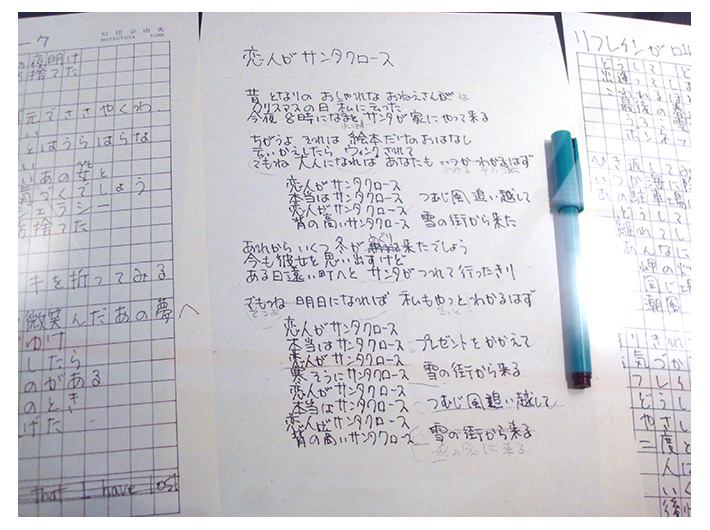 ーク
松任谷由実
MATSUTOYA YUMI
の夜明け
捨てた
元でささやくわ
とはうらはらな
い
いあの女と
気づくでしょう
ジェラシー
捨てた
キを折ってみる
微笑んだあの夢へ
ゆけ
したら
のがある
のとき
げた
that I have lost
恋人がサンタクロース
昔 となりの おしゃれな おねえさんが は
クリスマスの日 私に云った
今夜 8時になると サンタが家にやって来る
ちがうよ それは 絵本だけのおはなし
云いかえしたら ウィンクされて
でもね 大人になれば あなたも いつかわかるはず
恋人がサンタクロース
本当はサンタクロース つむじ風 追い越して
恋人がサンタクロース
背の高いサンタクロース 雪の街から来た
あれから いくつ 冬が めぐり 来たでしょう
今も 彼女を 思い出すけど
ある日 遠い町へと サンタがつれて行ったきり
でもね 明日になれば 私もきっとわかるはず
そうよ
恋人がサンタクロース
本当はサンタクロース プレゼントをかかえて
恋人がサンタクロース
寒そうにサンタクロース 雪の街から来る
恋人がサンタクロース
本当はサンタクロース つむじ風 追い越して
恋人がサンタクロース
背の高いサンタクロース 雪の街から来る
私の家に来る
リフレインが叫
どうして
出逢って
こわれるほど
最後の
ボンネッ
ひき返して
いつか
あの駐車場
どうして
離れて
あんなに
岬の灯
同じ場
潮風
りきれ
気づか
フレイ
どうし
やさし
二度と
人は
いく
後悔